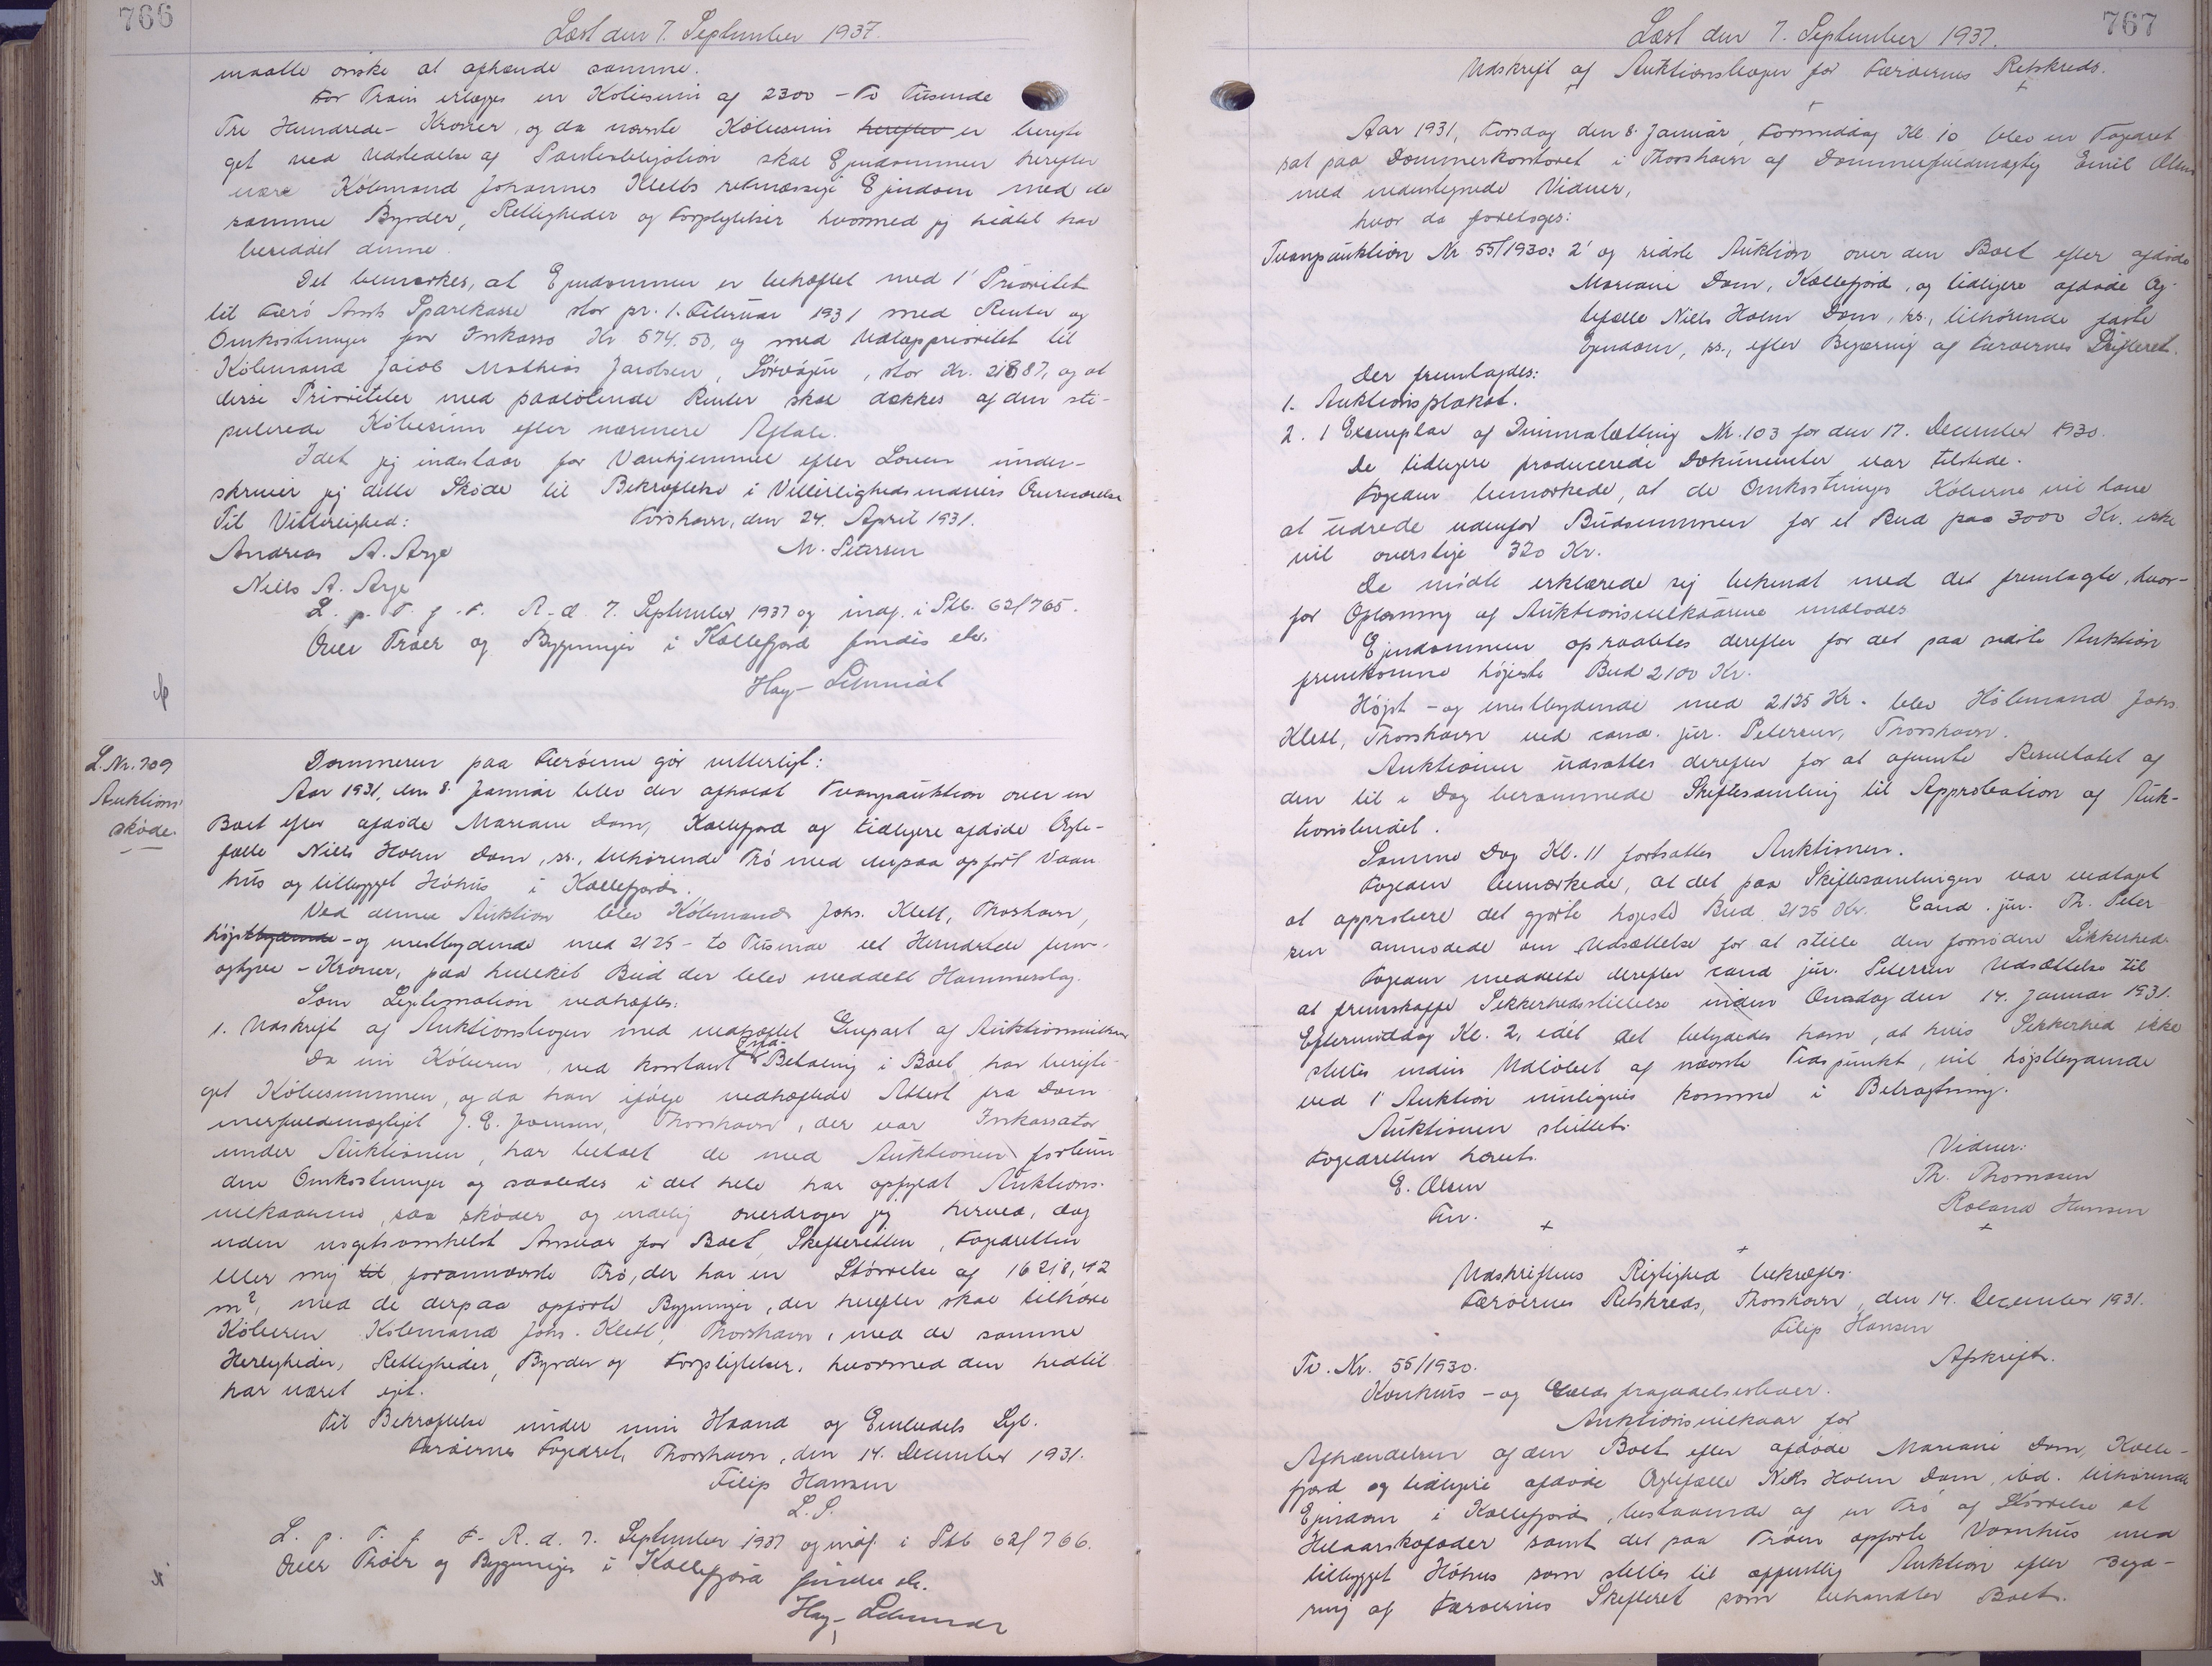 766
Læst den 7. September 1937.
maatte ønske at afhænde samme.
For Trøen erlægges en Købesum af 2300 - To Tusinde
Tre Hundrede - Kroner, og da nævnte Købesum herefter er berigti
get ved Udstedelse af Panteobligation skal Ejendommen herefter
være Købmand Johannes Kletts retmæssige Ejendom med de
samme Byrder, Rettigheder og Forpligtelser hvormed jeg hidtil har
besiddet denne.
Det bemærkes, at Ejendommen er behæftet med 1' Prioritet
til Færø Amts Sparekasse stor pr. 1. Februar 1931 med Renter og
Omkostninger for Inkasso Kr. 574.50, og med Udlægsprioritet til
Købmand Jacob Mathias Jacobsen, Sörvágur, stor Kr. 218 87, og at
disse Prioriteter med paaløbende Renter skal dækkes af den sti-
pulerede Købesum efter nærmere Aftale.
Idet jeg indestaar for Vanhjemmel efter Loven under-
skriver jeg dette Skøde til Bekræftelse i Vitterlighedsvidners Overværelse
Til Vitterlighed: Torshavn, den 24. April 1931.
Andreas A. Arge M. Petersen
Niels A. Arge
L. p. T. f. F. R. d. 7. September 1937 og indf. i Skb. 62/765.
Over Trøer og Bygninger i Kollefjord findes etc.
Hay-Schmidt
L. Nr. 709
Auktions
skøde.
Dommeren paa Færøerne gør vitterligt:
Aar 1931, den 8. Januar blev der afholdt Tvangsauktion over en
Boet efter afdøde Mariane Dam, Kollefjord og tidligere afdøde Ægte-
fælle Niels Holm Dam, ss., tilhørende Trø med derpaa opført Vaan
hus og tilbygget Høhus i Kollefjord.
Ved denne Auktion blev Købmand Johs. Klett, Thorshavn,
højstbydende - og mestbydende med 2125 - to Tusinde et Hundrede fem-
ogtyve - Kroner, paa hvilket Bud der blev meddelt Hammerslag.
Som Legitimation vedhæftes:
1. Udskrift af Auktionsbogen med vedhæftet Genpart af Auktionsvilkaar
Da nu Køberen ved kontant Ind- Betaling i Boet har berigti-
get Købesummen, og da han ifølge vedhæftede Attest fra Dom
merfuldmægtiget J. E. Joensen, Thorshavn, der var Inkassator
under Auktionen, har betalt de med Auktionen forbun
dne Omkostninger og saaledes i det hele har opfyldt Auktions-
vilkaarene, saa skøder og endelig overdrager jeg herved, dog
uden nogetsomhelst Ansvar for Boet, Skifteretten, Fogedretten
eller mig til forannævnte Trø, der har en Størrelse af 16218,42
m², med de derpaa opførte Bygninger, der herefter skal tilhøre
Køberen Købmand Johs. Klett, Thorshavn, med de samme
Herligheder, Rettigheder, Byrder og Forpligtelser, hvormed den hidtil
har været ejet.
Til Bekræftelse under min Haand og Embedets Segl.
Færøernes Fogedret, Thorshavn, den 14. December 1931.
Filip Hansen
L. S.
L. p. T. f. F. R. d. 7. September 1937 og indf. i Skb 62/766.
Over Trøer og Bygninger i Kollefjord findes etc.
Hay-Schmidt
767
Læst den 7. September 1937.
Udskrift af Auktionsbogen for Færøernes Retskreds.
Aar 1931, Torsdag den 8. Januar, Formiddag Kl. 10 blev en Fogedret
sat paa Dommerkontoret i Thorshavn af Dommerfuldmægtig Emil Olsen
med undertegnede Vidner,
hvor da foretoges:
Tvangsauktion Nr 55/1930: 2' og sidste Auktion over den Boet efter afdøde
Mariane Dam, Kollefjord, og tidligere afdøde Æg-
tefælle Niels Holm Dam, ss., tilhørende faste
Ejendom, ss., efter Begæring af Færøernes Skifteret.
Der fremlagdes:
1. Auktionsplakat.
2. 1 Exemplar af Dimmalætting Nr. 103 for den 17. December 1930.
De tidligere producerede Dokumenter var tilstede.
Fogeden bemærkede, at de Omkostninger Køberne vil have
at udrede udenfor Budsummen for et Bud paa 3000 Kr. ikke
vil overstige 320 Kr.
De mødte erklærede sig bekendt med det fremlagte, hvor-
for Oplæsning af Auktionsvilkaarene undlodes
Ejendommen opraabtes derefter for det paa sidste Auktion
fremkomne højeste Bud 2100 Kr.
Højst - og mestbydende med 2125 Kr. blev Købmand Johs.
Klett, Thorshavn ved cand. jur. Petersen, Thorshavn.
Auktionen udsattes derefter for at afvente Resultatet af
den til i Dag berammede Skiftesamling til Approbation af Auk-
tionsbudet.
Samme Dag Kl. 11 fortsattes Auktionen.
Fogeden bemærkede, at det paa Skiftesamlingen var vedtaget
at approbere det gjorte højeste Bud 2125 Kr. Cand. jur. Th. Peter
sen anmodede om Udsættelse for at stille den fornødne Sikkerhed.
Fogeden meddelte derefter cand jur. Petersen Udsættelse til
at fremskaffe Sikkerhedsstillelse inden Onsdag den 14. Januar 1931.
Eftermiddag Kl. 2, idet det betydedes ham, at hvis Sikkerhed ikke
stilles inden Udløbet af nævnte Tidspunkt, vil højstbydende
ved 1' Auktion muligvis komme i Betragtning.
Auktionen sluttet.
Fogedretten hævet.
E. Olsen
Fm.
Vidner:
Th. Thomsen
Roland Hansen
Udskriftens Rigtighed bekræftes.
Færøernes Retskreds, Thorshavn, den 14. December 1931.
Filip Hansen
Tv. Nr. 55/1930. Afskrift.
Konkurs - og Gælds fragaaelsesboer.
Auktionsvilkaar for
Afhændelsen af den Boet efter afdøde Mariane Dam, Kolle-
fjord og tidligere afdøde Ægtefælle Niels Holm Dam, ibd. tilhørende
Ejendom i Kollefjord, bestaaende af en Trø af Størrelse et
Helaarskofoder samt det paa Trøen opførte Vaanhus med
tilbygget Høhus som stilles til offentlig Auktion efter Begæ-
ring af Færøernes Skifteret som behandler Boet.